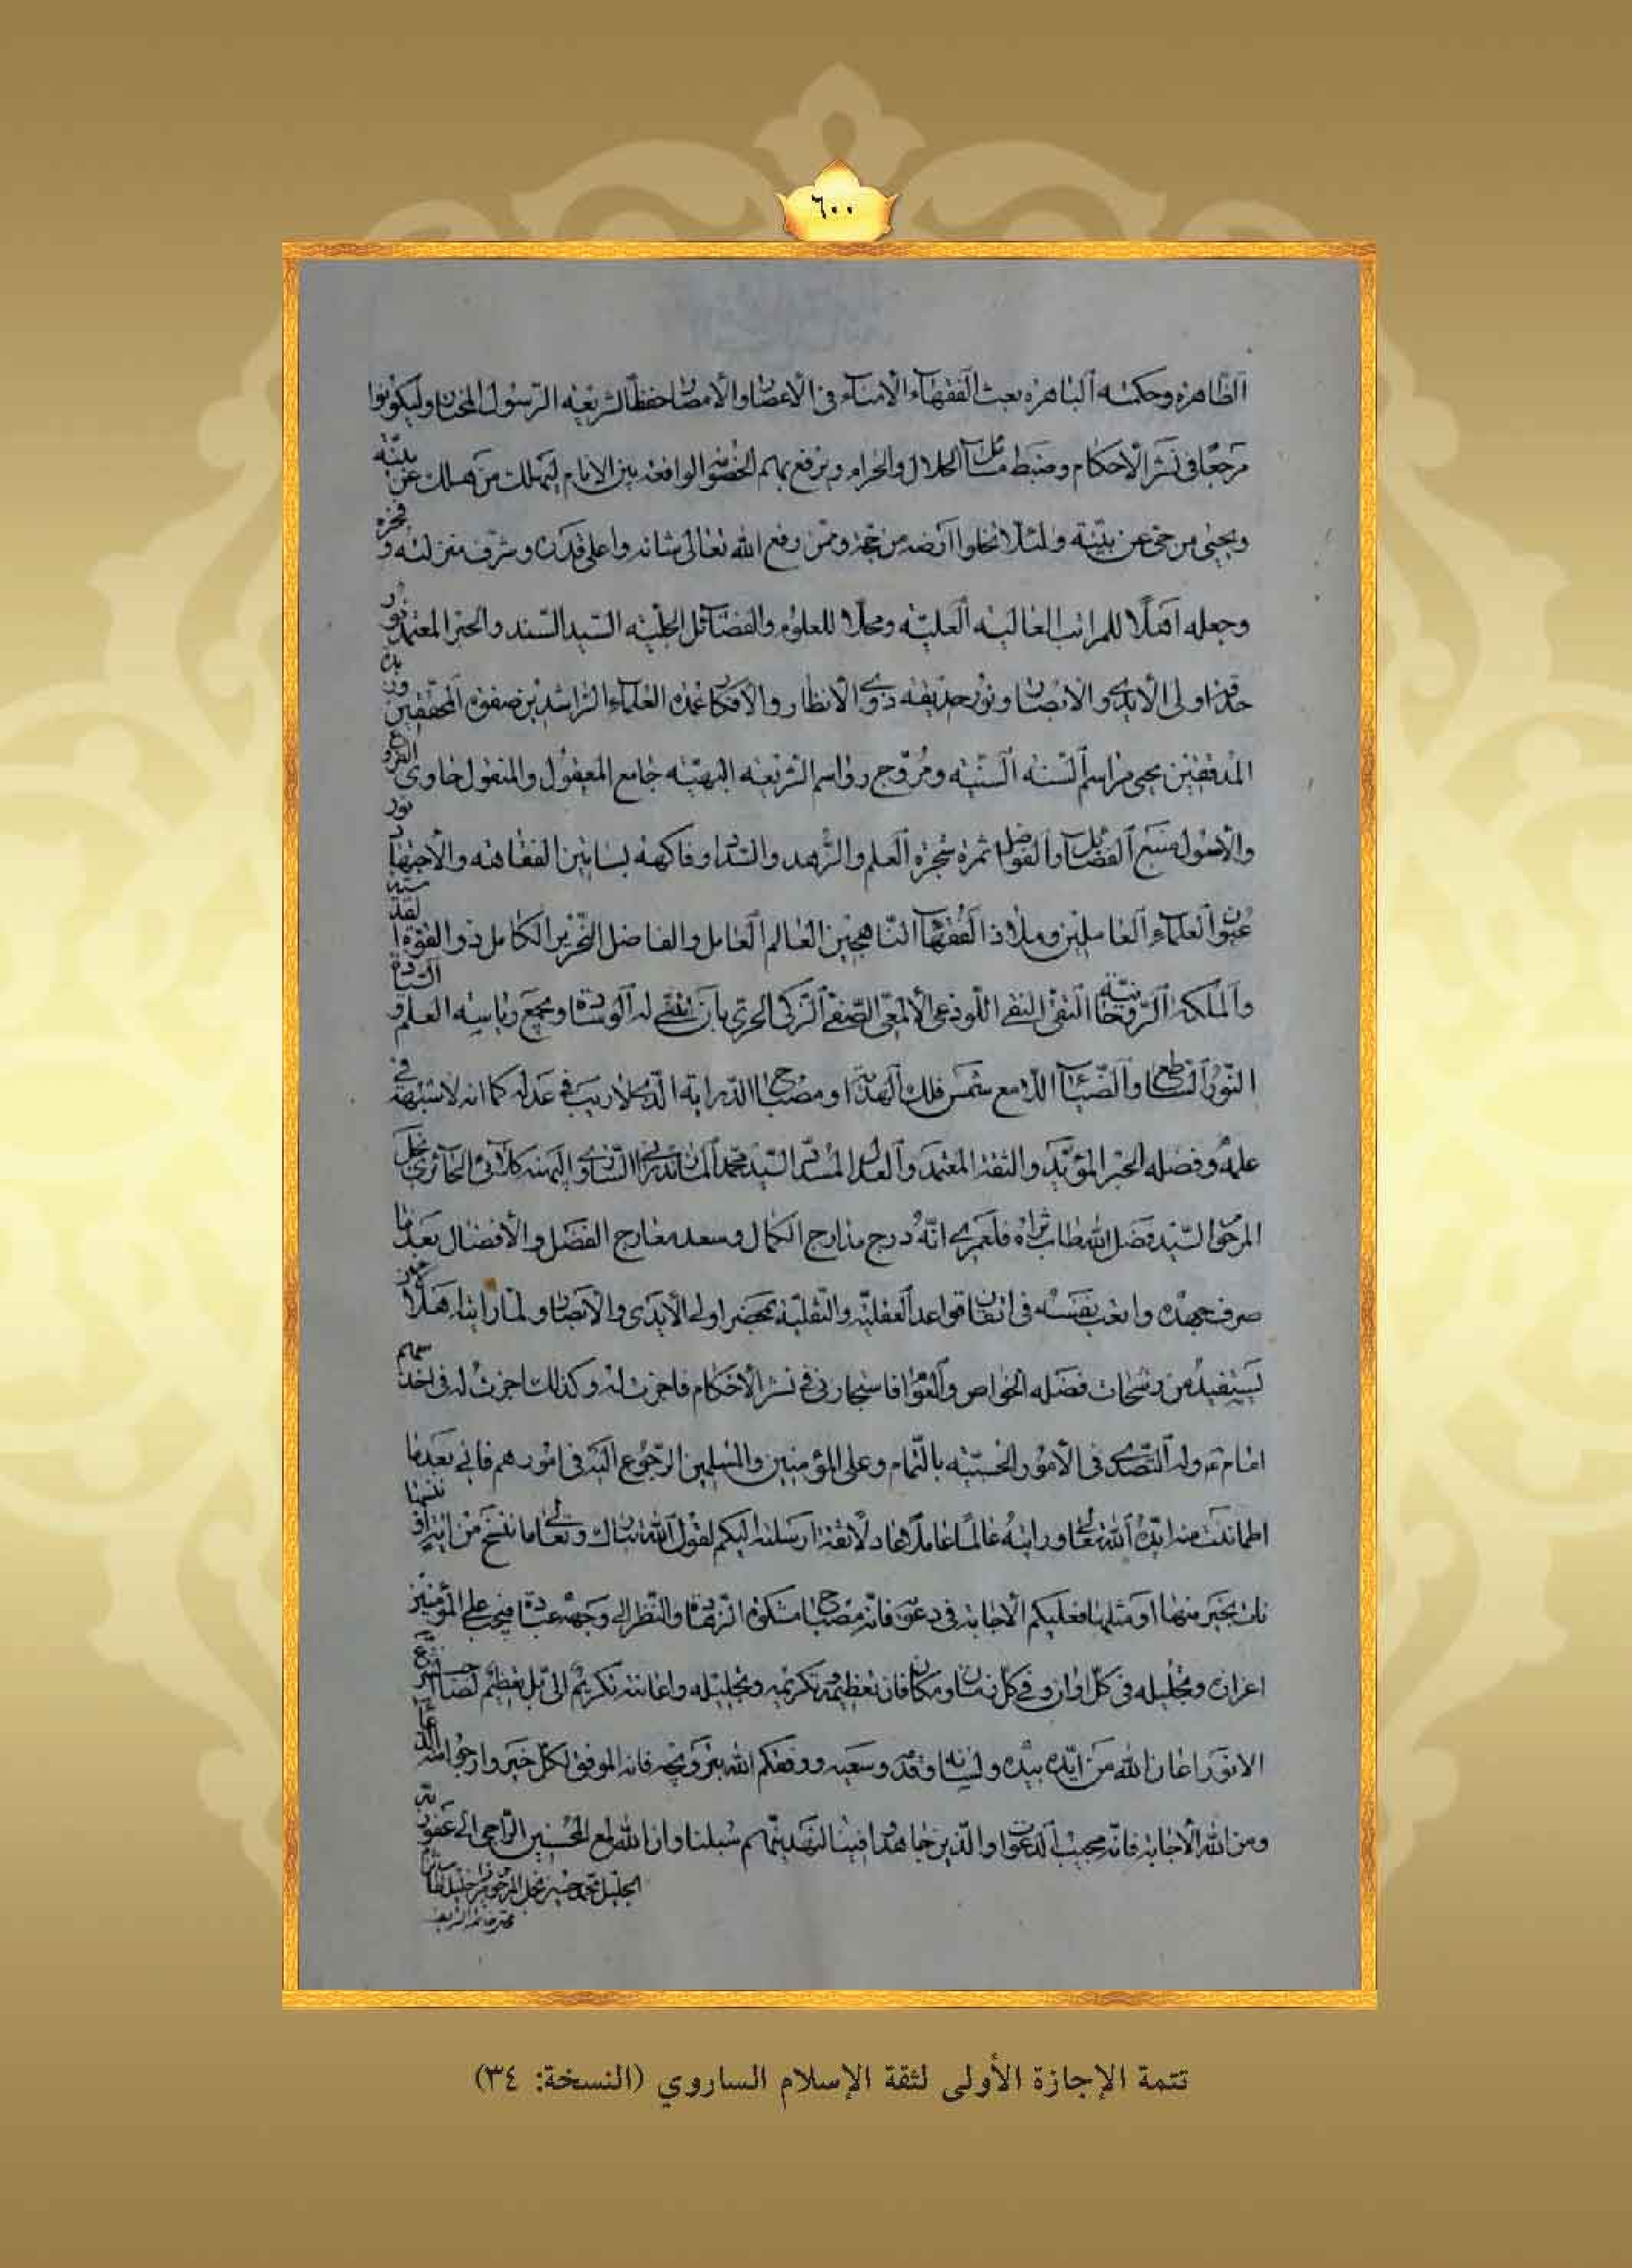 ٦٠٠
الظاهرة وحكمته الباهرة بعث الفقهاء الامناء فى الأعصار والأمصار حفظاً لشريعة الرسول المختار وليكونوا
مرجعًا فى نشر الأحكام وضبط مسائل الحلال والحرام ويرفع بهم الواقعة بين الانام ليهلك من هلك عن بينة
ويحيى من حى عن بينة ولئلا تخلوا أرضه من حجة وممن رفع الله تعالى شانه واعلى قدره وشرف منزلته وفخره
وجعله أهلًا للمراتب العالية العلية ومحلا للعلوم والفضائل الجلية السيد السند والحبر المعتمد نور
حدقة اولى الأيدى والابصار ونور حديقة ذوى الانظار والأفكار عمدة العلماء الراشدين صفوة المحققين
المدققين محيى مراسم السنة السنية ومروج رواسم الشريعة البهية جامع المعقول والمنقول حاوى الفروع
والأصول منبع الفضائل والفواضل ثمرة شجرة العلم والزهد والسداد وفاكهة بساتين الفقاهة والأجتهاد
العلماء العاملين وملاذ الفقهاء الناهجين العالم العامل والفاضل النحرير الكامل ذو القوة
والملكة الروحانية التقى النقى اللوذعى الألمعى الصفى الزكى الحرى بأن له الوسادة ومجمع رياسة العلم و السيادة
النور الساطع والضياء اللامع شمس فلك الهداية ومصباح الدراية الذى لا ريب فى عدله كما انه لا شبهة فى
علمه وفضله الحبر المؤيد والثقة المعتمد والعدل المسدد السيد محمد المازندرانى الساروى الحائرى نجل
المرحوم السيد فضل الله طاب ثراه فلعمرى انّه درج مدارج الكمال وصعد معارج الفضل والأفضال بعد ما
صرف جهده واتعب نفسه فى اتقان قواعد العقلية والنقلية بمحضر اولى الأيدى والأبصار ولما رايناه هلالا
يستفيد من رشحات فضله الخواص والعوام فاستجازنى فى نشر الأحكام فاجزت له وكذلك اجزت له فى اخذ سهم
امام ع وله التصدى فى الأمور الحسبية بالتمام وعلى المؤمنين والمسلمين الرجوع اليه فى امورهم فانى بعد ما
اطمأننت منه ايده الله تعالى ورايته عالمًا عاملًا عادلًا ثقة ارسلته اليكم لقول الله تبارك وتعالى ما ننسخ من اية او ننسها
نأت بخير منها او مثلها فعليكم الاجابة فى دعوته فانه مصباح مشكوة الزهادة والنظر الى وجهه عبادة فيجب على المؤمنين
اعزازه وتجليله فى كل اوان وفى كل زمان ومكان فان تعظيمه وتكريمه وتجليله واعانته تكريم الى بل تعظيم لصاحب الشرع
الانور اعان الله من ايده بيده ولسانه وقدمه وسعيه ووفقكم الله فانه الموفق لكل خير وارجوا منه الدعاء
ومن الله الاجابة فانه مجيب الدعوات والذين جاهدوا فينا لنهدينهم سبلنا وان الله لمع المحسنين الراجى الى عفو ربه
الجليل محمد حسين نجل المرحوم خليل
محل خاتمه الشريف
تتمة الإجازة الأولى لثقة الإسلام الساروي (النسخة: ٣٤)